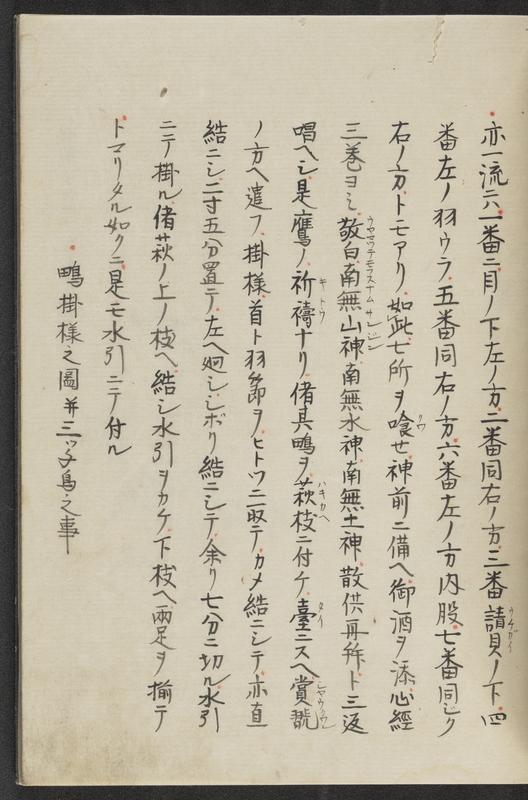 亦一流ニハ一番ニ目ノ下左ノ方二番同右ノ方三番請貝ノ下四
番左ノ羽ウラ五番同右ノ方六番左ノ方内股七番同ジク
右ノ方トモアリ如此七所ヲ喰セ神前ニ備ヘ御酒ヲ添心經
三巻ヨミ敬白南無山神南無水神南無土神散供再拜ト三返
唱ヘシ是鷹ノ祈禱ナリ偖其鴫ヲ萩枝ニ付ケ臺ニスヘ賞翫
ノ方ヘ遣フ掛樣首ト羽節ヲヒトツニ取テカメ結ニシテ亦直
結ニシ二寸五分置テ左ヘ廻シシボリ結ニシテ余り七分ニ切ル水引
ニテ掛ル偖萩ノ上ノ枝ヘ結シ水引ヲカケ下枝ヘ兩足ヲ揃テ
トマリタル如クニ是モ水引ニテ付ル
鴫掛樣之圖并三ツ子鳥之事